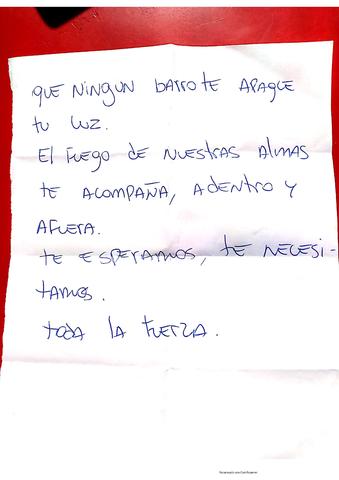 que ningun barrote apague
tu luz.
El fuego de nuestras almas
te acompaña, adentro y
afuera.
te esperamos, te necesi-
tamos.
toda la fuerza.